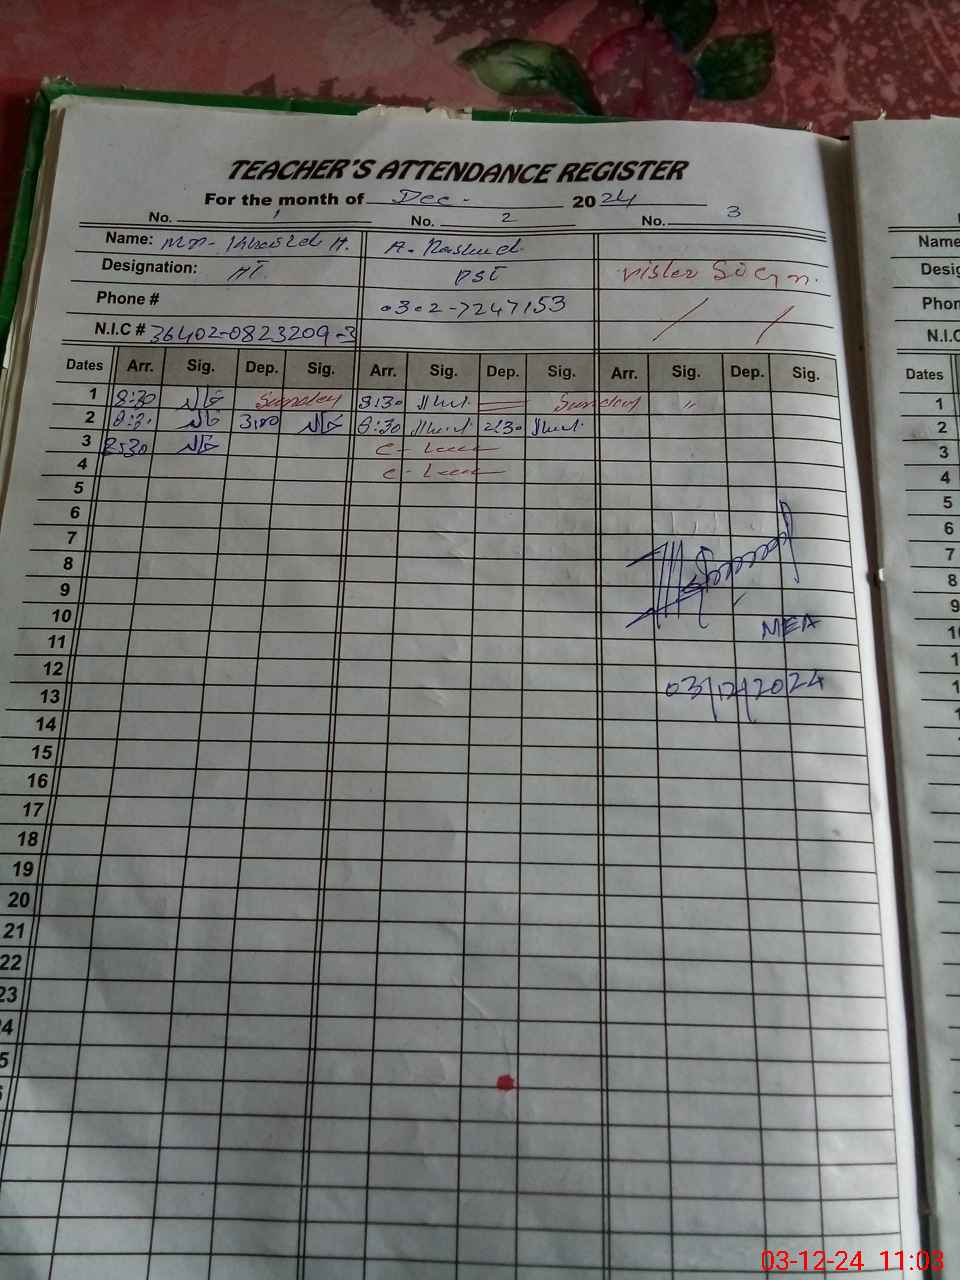 TEACHER'S ATTENDANCE REGISTER
For the month of Dec - 2024
No. 1 No. 2 No. 3
Name: A. Rashid Name
Designation: HT PST Visitor Sign. Desig
Phone # 0302-7247153 Phon
N.I.C # 36402-0823209-3 N.I.C
Dates Arr. Sig. Dep. Sig. Arr. Sig. Dep. Sig. Arr. Sig. Dep. Sig. Dates
1 8:30 Sunday 8:30 Sunday " 1
2 8:30 3:00 8:30 2:30 2
3 8:30 C-Leave 3
4 C-Leave 4
5 5
6 6
7 7
8 8
9 9
10 10
11 1
12 1
13 1
14 1
15
16
17
18
19
20
21
22
23
24
5
MEA
03/12/2024
03-12-24 11:03